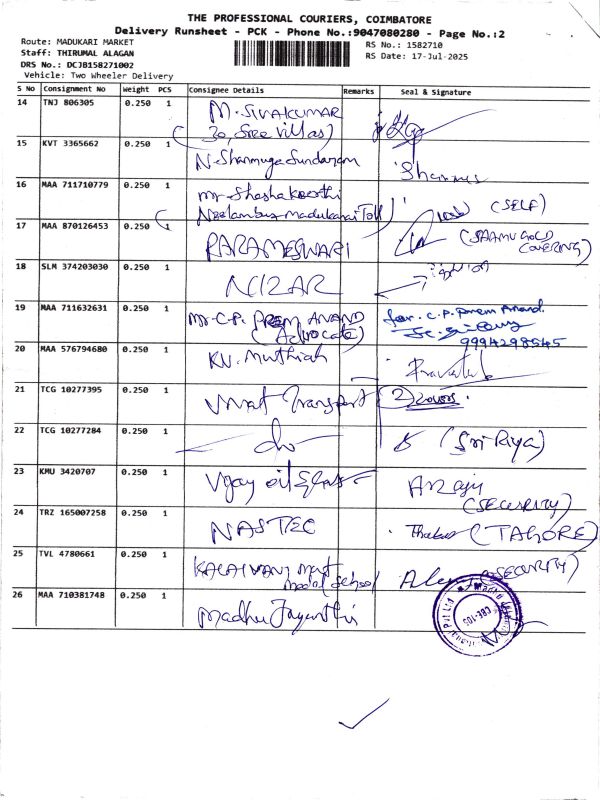 THE PROFESSIONAL COURIERS, COIMBATORE
Delivery Runsheet - PCK - Phone No.:9047080280 - Page No.:2
Route: MADUKARI MARKET
RS No.: 1582710
Staff: THIRUMAL ALAGAN
RS Date: 17-Jul-2025
DRS No.: DCJB158271002
Vehicle: Two Wheeler Delivery
S No Consignment No Weight PCS Consignee Details Remarks Seal & Signature
14 TNJ 806305 0.250 1 M. SIVAKUMAR
(30, Sree Villas)
15 KVT 3365662 0.250 1 N. Shanmuga Sundaram
16 MAA 711710779 0.250 1 Mr. (SELF)
17 MAA 870126453 1 PARAMESWARI (SAAMU GOLD
COVERING)
18 SLM 374203030 0.250 1 NIZAR
19 MAA 711632631 0.250 1 Mr. C.P. PREM ANAND for. C.P. Prem Anand
(Advocate)
9994298545
20 MAA 576794680 0.250 1 KN. Muthiah
21 TCG 10277395 0.250 1 Transport 2 covers.
22 TCG 10277284 0.250 1 do (Sri Riya)
23 KMU 3420707 0.250 1 Vijay oil
(SECURITY)
24 TRZ 165007258 0.250 1 NASTEC (TAGORE)
25 TVL 4780661 0.250 1 KALAIVANI School (SECURITY)
26 MAA 710381748 0.250 1 Madhu Jayanthi
CBE-105